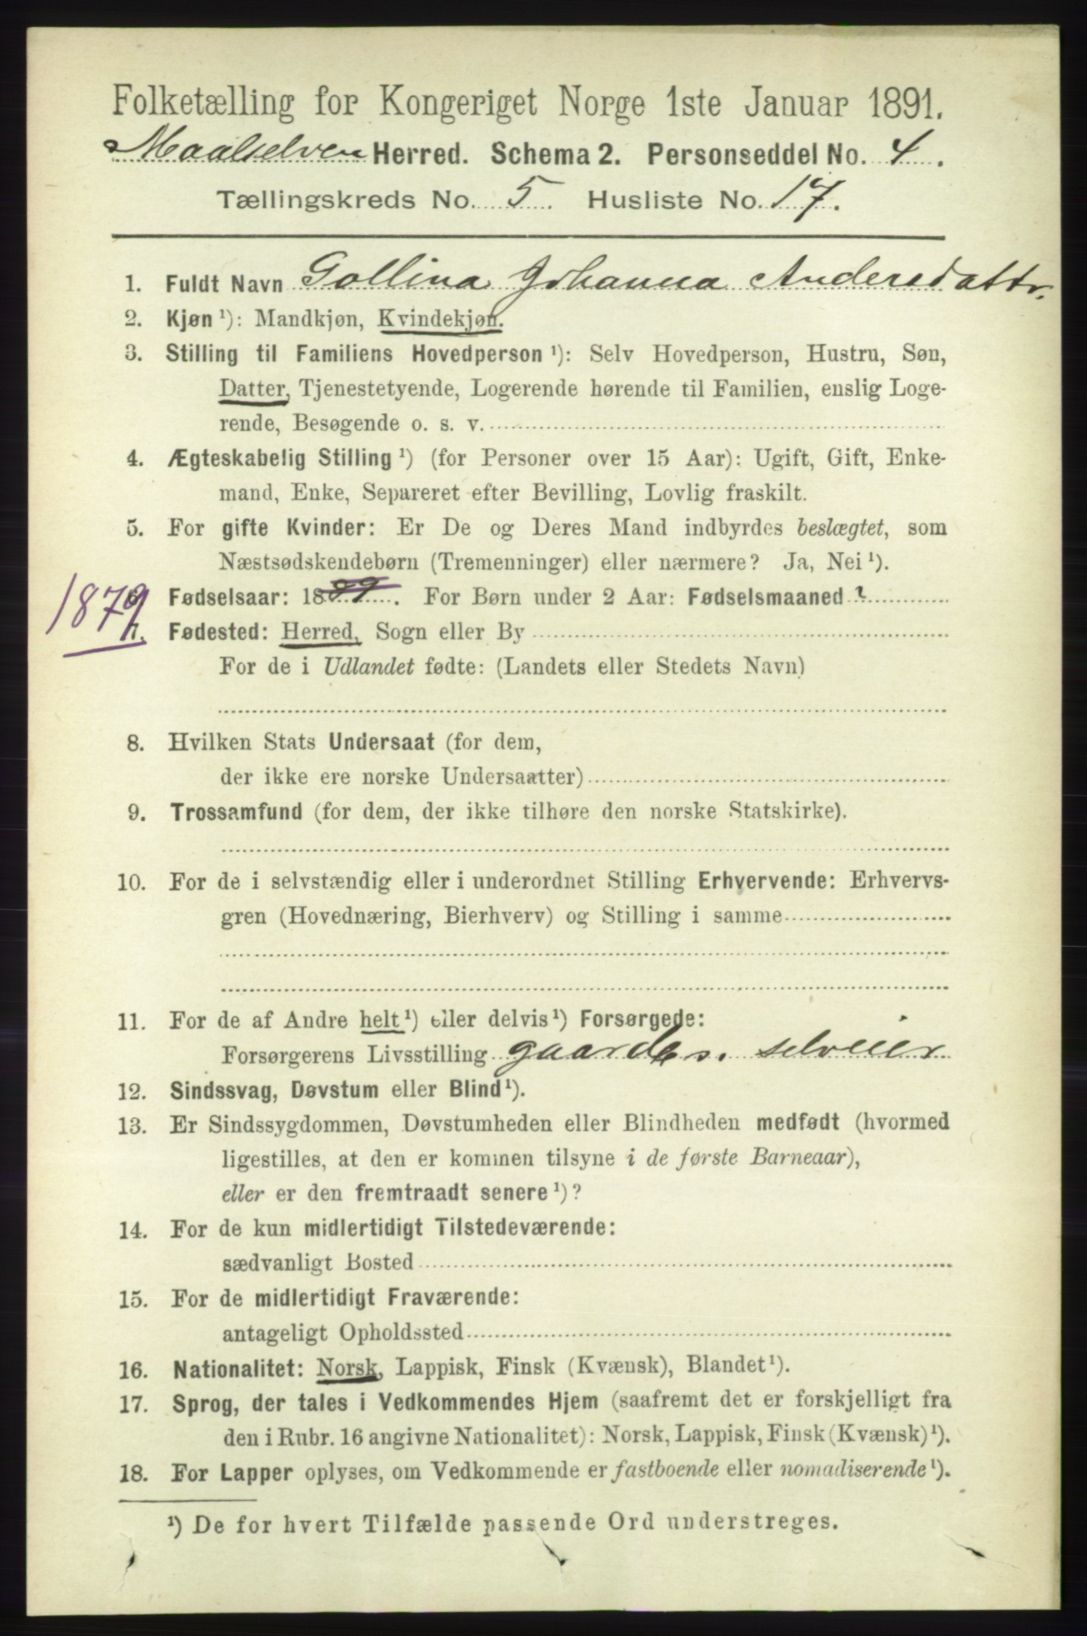 Folketælling for Kongeriget Norge 1ste Januar 1891.
Maalselven Herred. Schema 2. Personseddel No. 4.
Tællingskreds No. 5. Husliste No. 17.
1. Fuldt Navn Gollina Johanna Andersdattr.
2. Kjøn ¹): Mandkjøn, Kvindekjøn.
3. Stilling til Familiens Hovedperson ¹): Selv Hovedperson, Hustru, Søn,
Datter, Tjenestetyende, Logerende hørende til Familien, enslig Loge-
rende, Besøgende o. s. v.
4. Ægteskabelig Stilling ¹) (for Personer over 15 Aar): Ugift, Gift, Enke-
mand, Enke, Separeret efter Bevilling, Lovlig fraskilt.
5. For gifte Kvinder: Er De og Deres Mand indbyrdes beslægtet, som
Næstsødskendebørn (Tremenninger) eller nærmere? Ja, Nei ¹).
1879
6. Fødselsaar: 1889. For Børn under 2 Aar: Fødselsmaaned
7. Fødested: Herred, Sogn eller By
For de i Udlandet fødte: (Landets eller Stedets Navn)
8. Hvilken Stats Undersaat (for dem,
der ikke ere norske Undersaatter)
9. Trossamfund (for dem, der ikke tilhøre den norske Statskirke).
10. For de i selvstændig eller i underordnet Stilling Erhvervende: Erhvervs-
gren (Hovednæring, Bierhverv) og Stilling i samme
11. For de af Andre helt ¹) eller delvis ¹) Forsørgede:
Forsørgerens Livsstilling gaardbr. selveier
12. Sindssvag, Døvstum eller Blind ¹).
13. Er Sindssygdommen, Døvstumheden eller Blindheden medfødt (hvormed
ligestilles, at den er kommen tilsyne i de første Barneaar),
eller er den fremtraadt senere ¹)?
14. For de kun midlertidigt Tilstedeværende:
sædvanligt Bosted
15. For de midlertidigt Fraværende:
antageligt Opholdssted
16. Nationalitet: Norsk, Lappisk, Finsk (Kvænsk), Blandet ¹).
17. Sprog, der tales i Vedkommendes Hjem (saafremt det er forskjelligt fra
den i Rubr. 16 angivne Nationalitet): Norsk, Lappisk, Finsk (Kvænsk) ¹).
18. For Lapper oplyses, om Vedkommende er fastboende eller nomadiserende ¹).
¹) De for hvert Tilfælde passende Ord understreges.